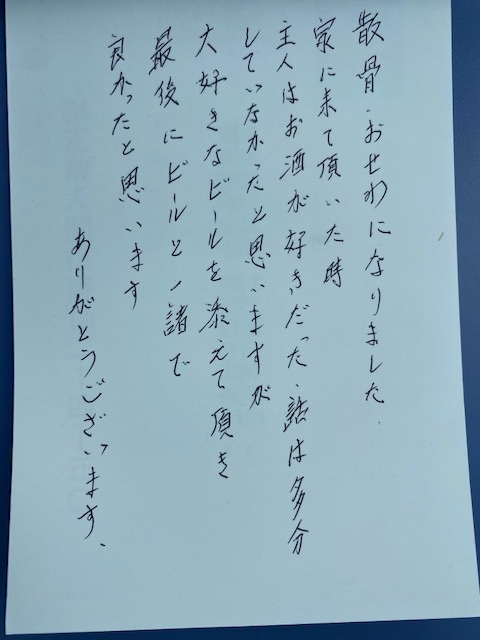 散骨、おせわになりました、
家に来て頂いた時
主人はお酒が好きだった、話は多分
していなかったと思いますが
大好きなビールを添えて頂き
最後にビールと一諸で
良かったと思います
ありがとうございます、